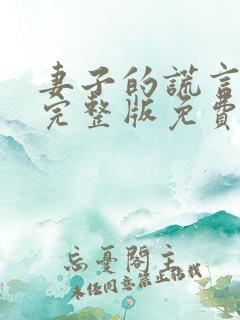 妻子的謊言
完整版免費
忘憂閣主
未任同意禁止搭我